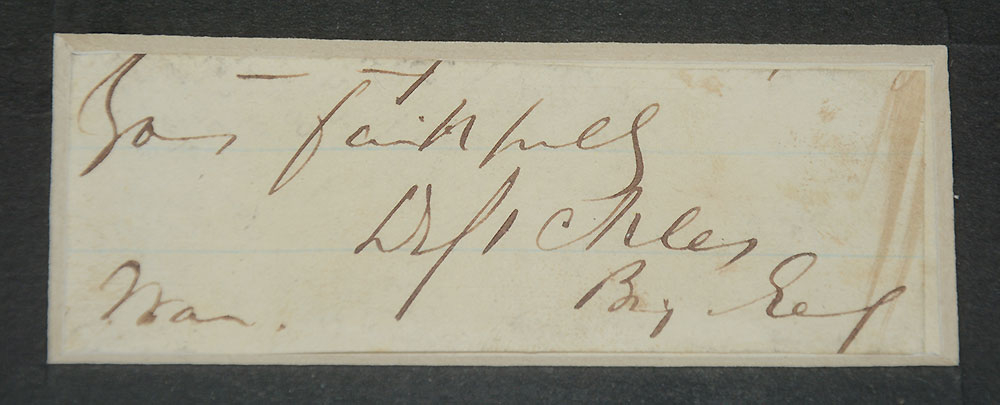 Yours faithfully
D E Sickles
Brig Genl